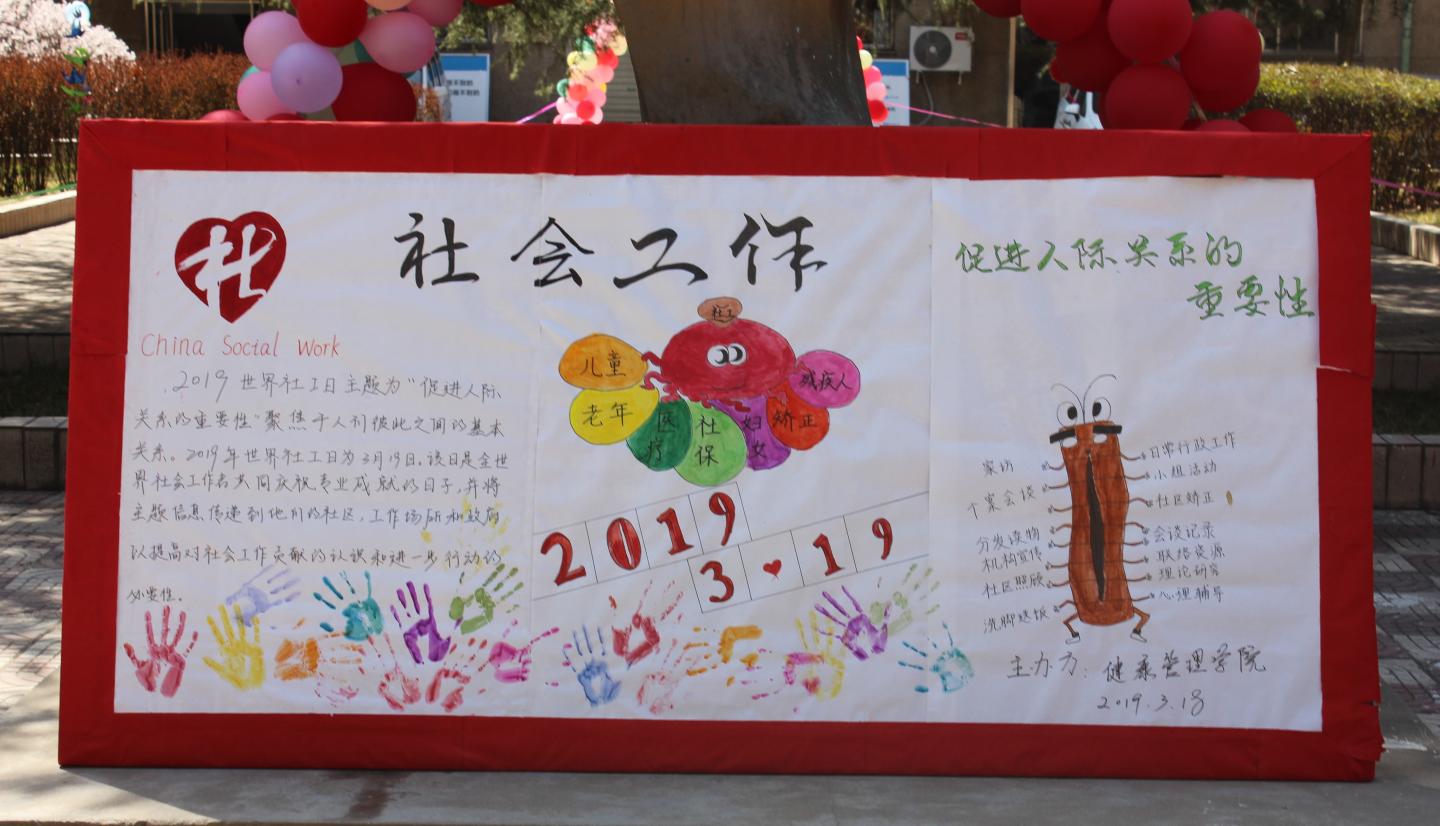 社
社会工作
China Social Work
2019世界社工日主题为“促进人际
关系的重要性”聚焦于人们彼此之间的基本
关系。2019年世界社工日为3月19日。该日是全世
界社会工作者共同庆祝专业成就的日子,并将
主题信息传递到他们的社区,工作场所和政府
以提高对社会工作贡献的认识和进一步行动的
必要性。
社工
儿童
老年
医疗
社保
妇女
矫正
残疾人
2019
3 19
促进人际关系的
重要性
家访
个案会谈
分发读物
机构宣传
社区照顾
洗脚送饭
日常行政工作
小组活动
社区矫正
会谈记录
联络资源
理论研究
心理辅导
主办方:健康管理学院
2019.3.18